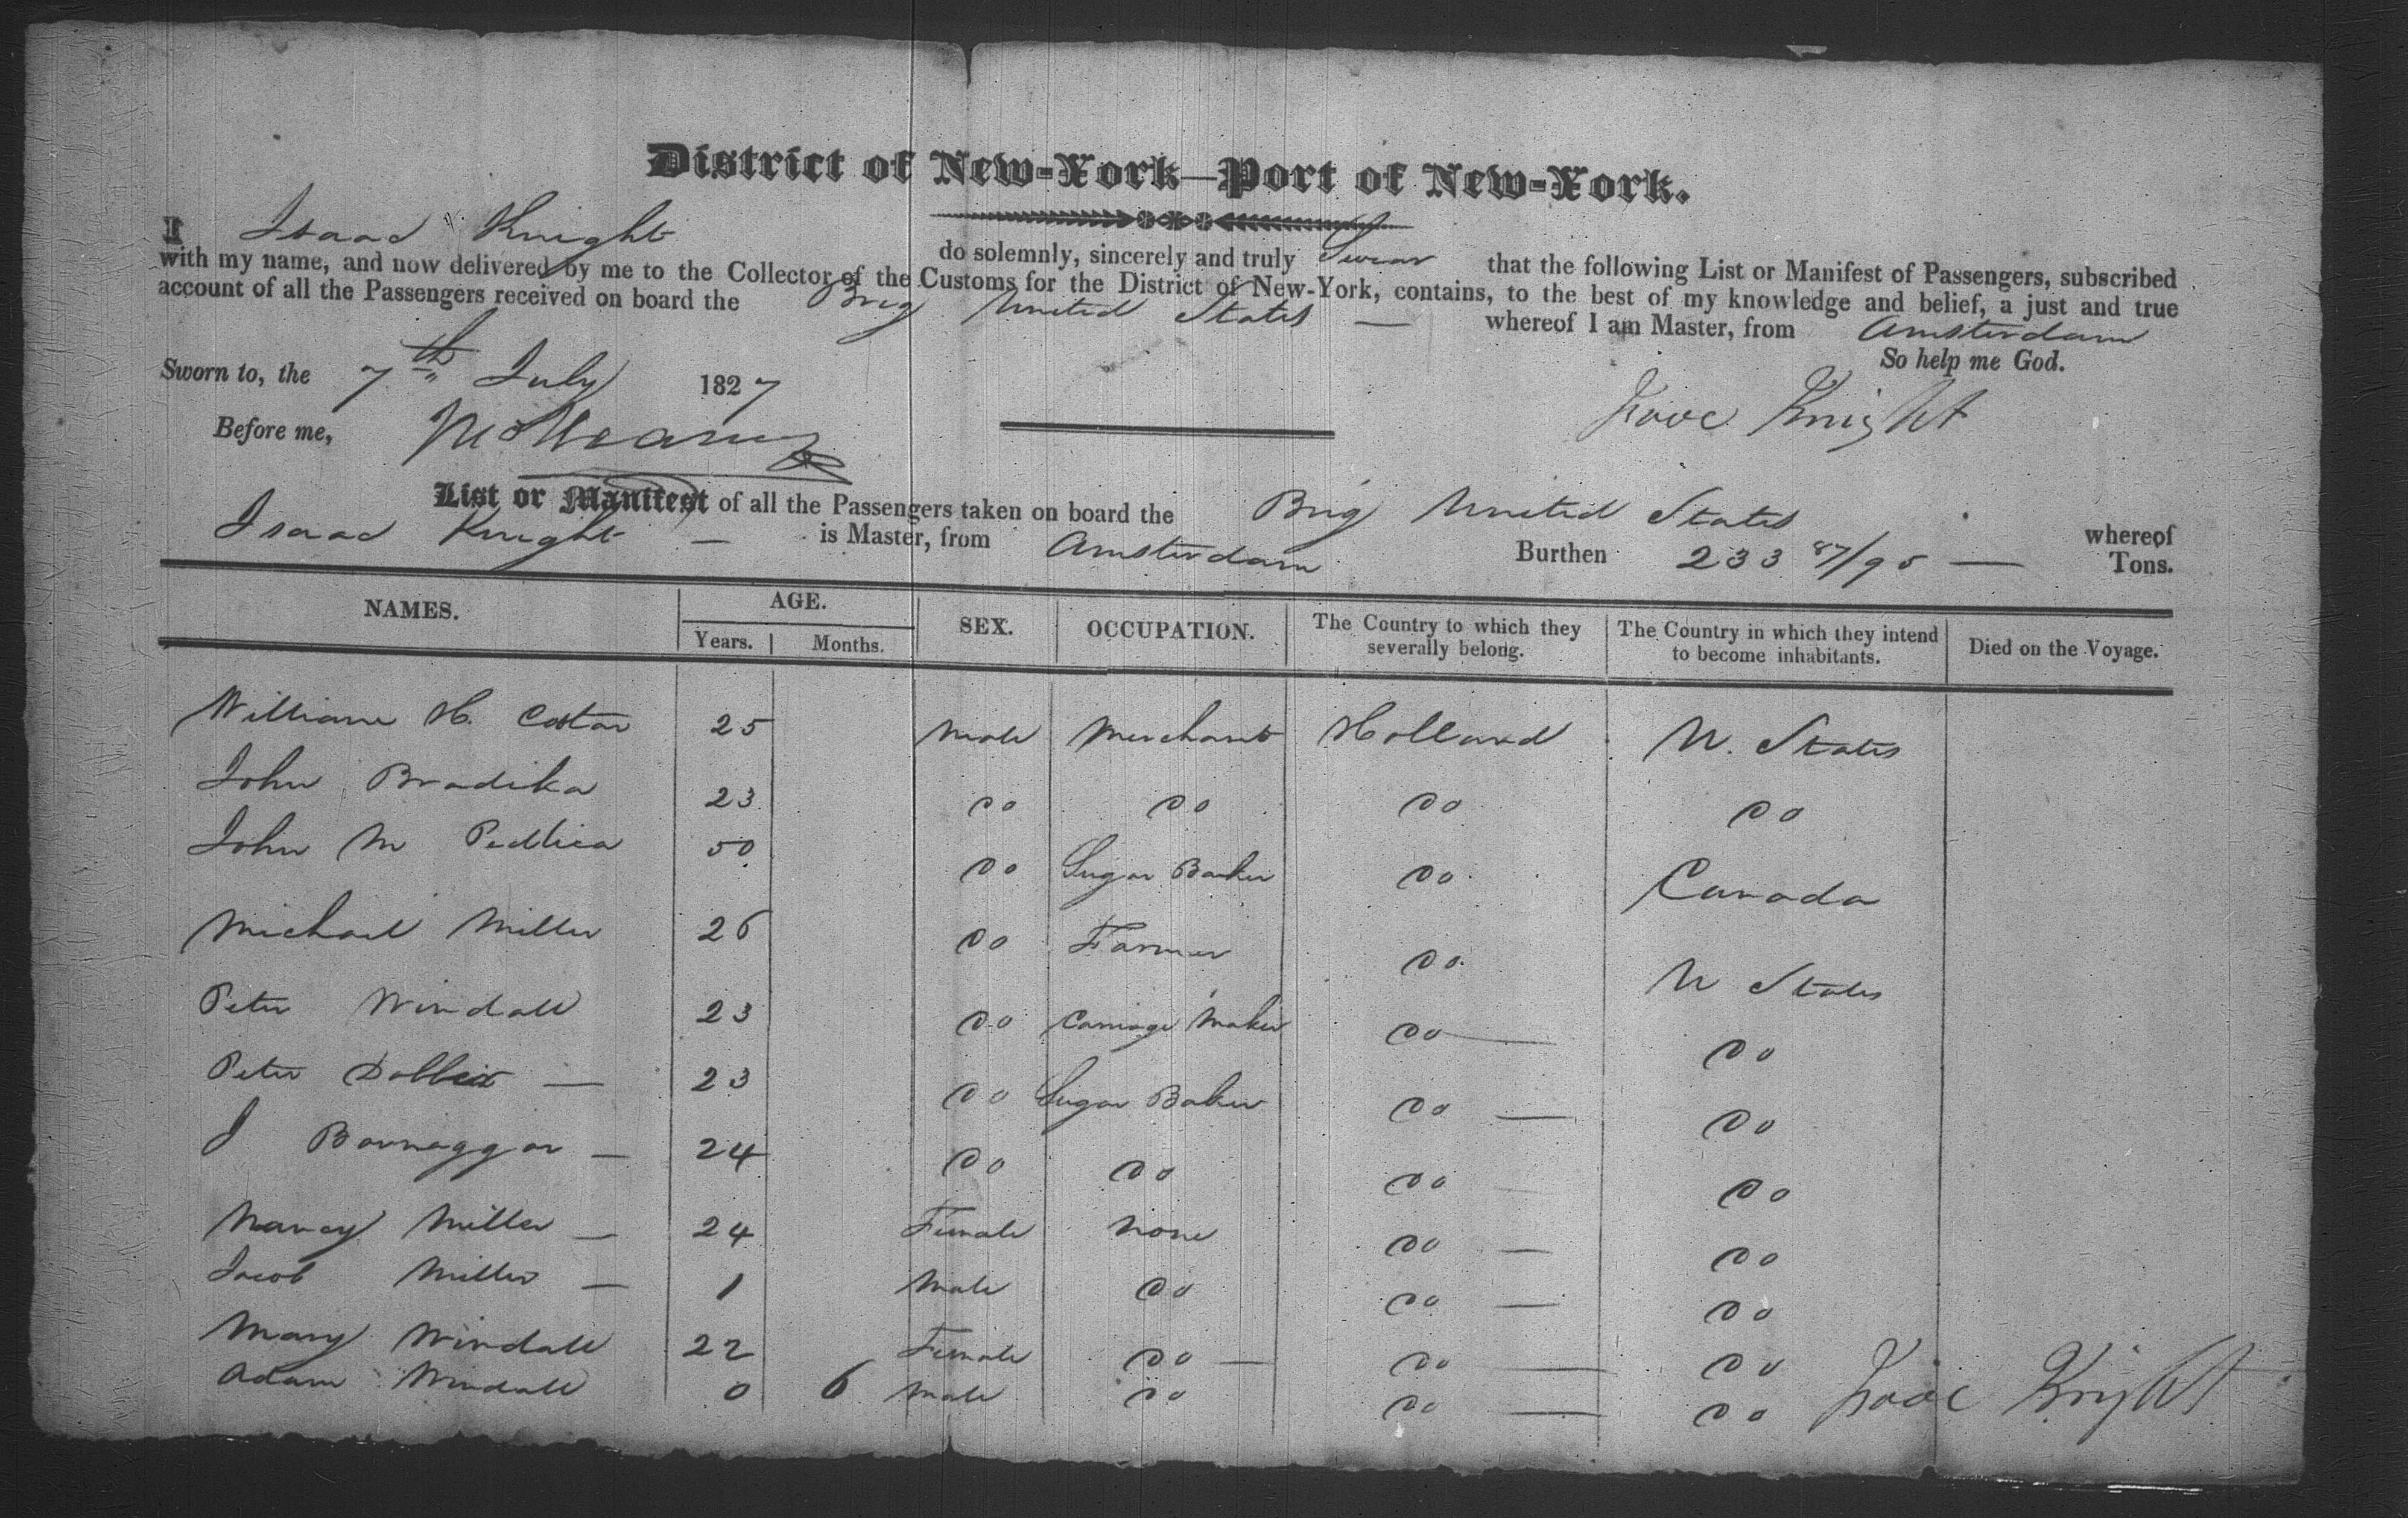 District of New-York—Port of New-York.
I Isaac Knight do solemnly, sincerely and truly Swear that the following List or Manifest of Passengers, subscribed
with my name, and now delivered by me to the Collector of the Customs for the District of New-York, contains, to the best of my knowledge and belief, a just and true
account of all the Passengers received on board the Brig United States — whereof I am Master, from Amsterdam
So help me God.
Sworn to, the 7th July 1827
Isaac Knight
Before me,
List or Manifest of all the Passengers taken on board the Brig United States whereof
Isaac Knight — is Master, from Amsterdam Burthen 233 87/95 — Tons.
NAMES. AGE. SEX. OCCUPATION. The Country to which they severally belong. The Country in which they intend to become inhabitants. Died on the Voyage.
Years. Months.
William H. Costar 25 male Merchant Holland U. States
John Bradika 23 Do Do Do Do
John M 50 Do Sugar Baker Do Canada
Michael Miller 26 Do Farmer Do U States
Peter Windall 23 Do Carriage Maker Do — Do
Peter — 23 Do Sugar Baker Do — Do
J — 24 Do Do Do — Do
Nancy Miller — 24 Female none Do — Do
Jacob Miller — 1 Male Do Do — Do
Mary Windall 22 Female Do — Do — Do
Adam Windall 0 6 male Do Do — Do
Isaac Knight